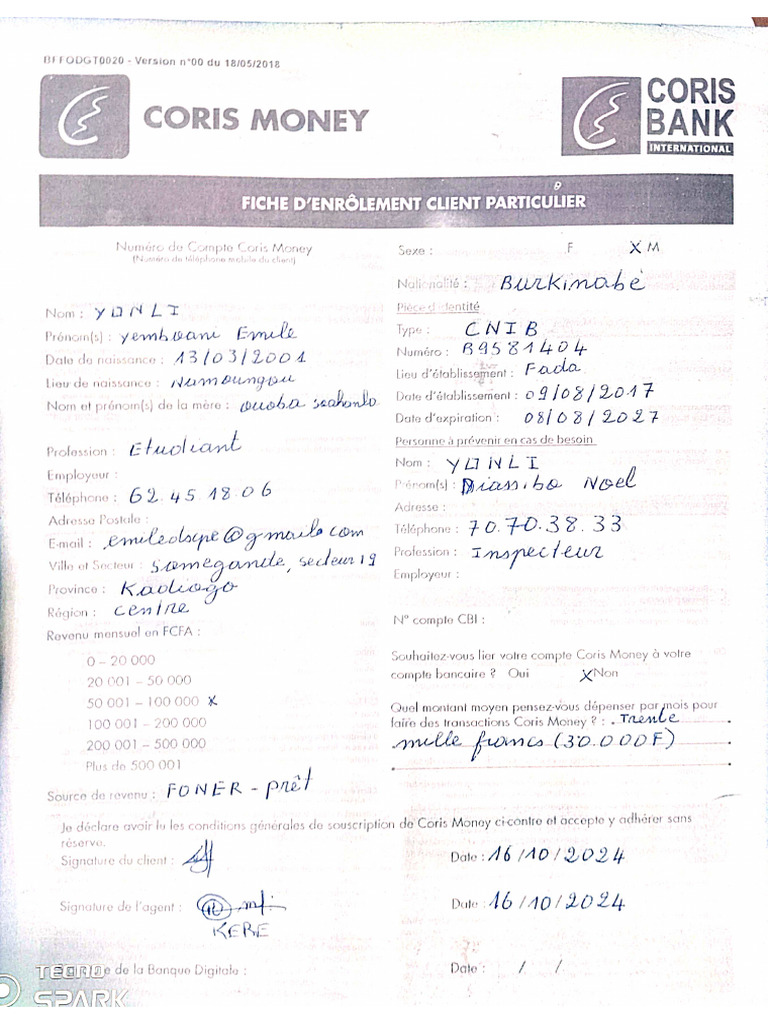 BFFODGT0020 - Version n°00 du 18/05/2018
CORIS MONEY
CORIS
BANK
INTERNATIONAL
FICHE D'ENRÔLEMENT CLIENT PARTICULIER
Numéro de Compte Coris Money
(Numéro de téléphone mobile du client)
Nom : YONLI
Prénom(s) : Yemboani Emile
Date de naissance : 13/03/2001
Lieu de naissance : Namoungou
Nom et prénom(s) de la mère : ouoba
Profession : Etudiant
Employeur :
Téléphone : 62.45.18.06
Adresse Postale :
E-mail :
Ville et Secteur : Somgandé, secteur 19
Province : Kadiogo
Région : Centre
Revenu mensuel en FCFA :
0 – 20 000
20 001 – 50 000
50 001 – 100 000 x
100 001 – 200 000
200 001 – 500 000
Plus de 500 001
Source de revenu : FONER - prêt
Sexe : F X M
Nationalité : Burkinabé
Pièce d'identité
Type : CNIB
Numéro : B9581404
Lieu d'établissement : Fada
Date d'établissement : 09/08/2017
Date d'expiration : 08/08/2027
Personne à prévenir en cas de besoin
Nom : YONLI
Prénom(s) : Diassibo Noel
Adresse :
Téléphone : 70.70.38.33
Profession : Inspecteur
Employeur :
N° compte CBI :
Souhaitez-vous lier votre compte Coris Money à votre
compte bancaire ? Oui X Non
Quel montant moyen pensez-vous dépenser par mois pour
faire des transactions Coris Money ? : Trente
mille francs (30.000F)
Je déclare avoir lu les conditions générales de souscription de Coris Money ci-contre et accepte y adhérer sans
réserve.
Signature du client :
Date : 16/10/2024
Signature de l'agent :
KERE
Date : 16/10/2024
de la Banque Digitale :
Date : / /
TECNO
SPARK